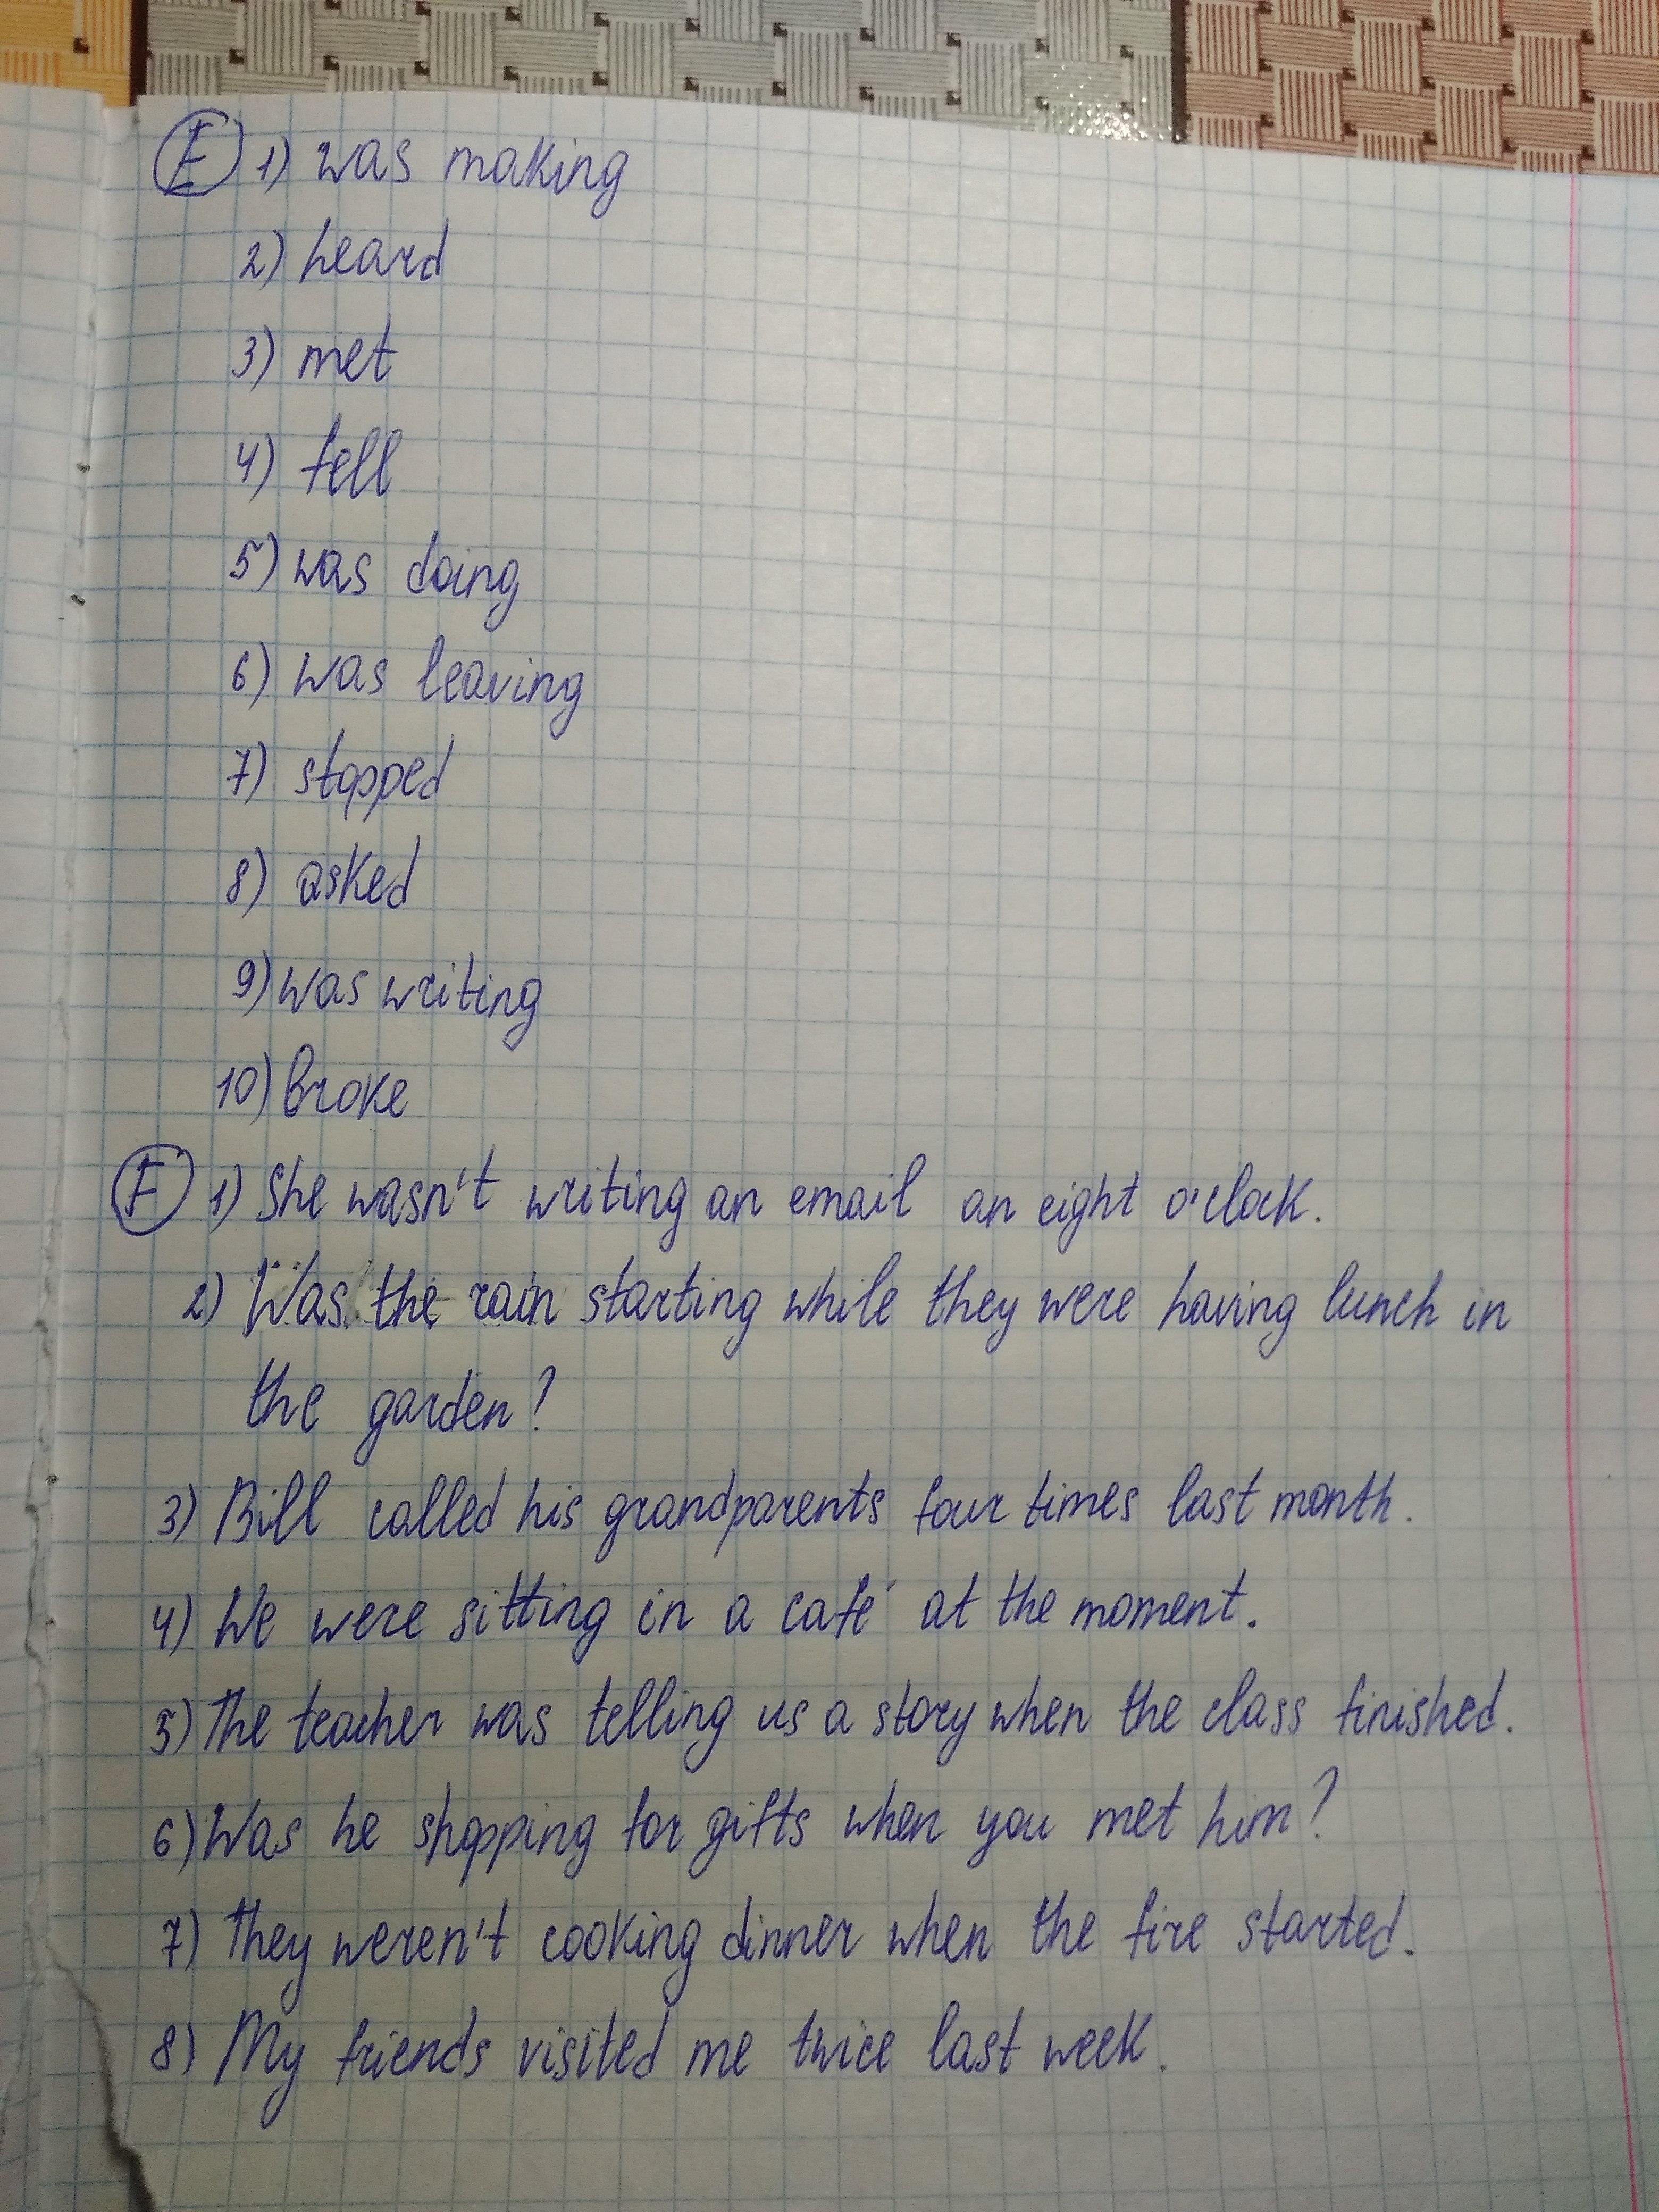 E 1) was making
2) heard
3) met
4) fell
5) was doing
6) was leaving
7) stopped
8) asked
9) was writing
10) broke
F 1) She wasn't writing an email an eight o'clock.
2) Was the rain starting while they were having lunch in
the garden?
3) Bill called his grandparents four times last month.
4) We were sitting in a café at the moment.
5) The teacher was telling us a story when the class finished.
6) Was he shopping for gifts when you met him?
7) They weren't cooking dinner when the fire started.
8) My friends visited me twice last week.